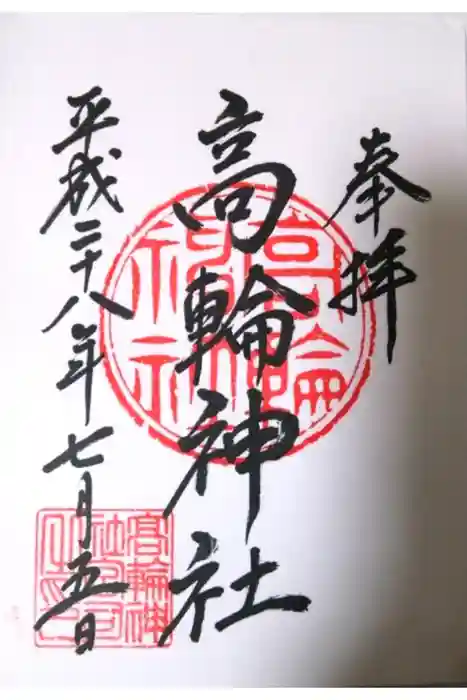 奉拝
高輪神社
平成二十八年七月五日
高輪神社
髙輪神社宮司之印